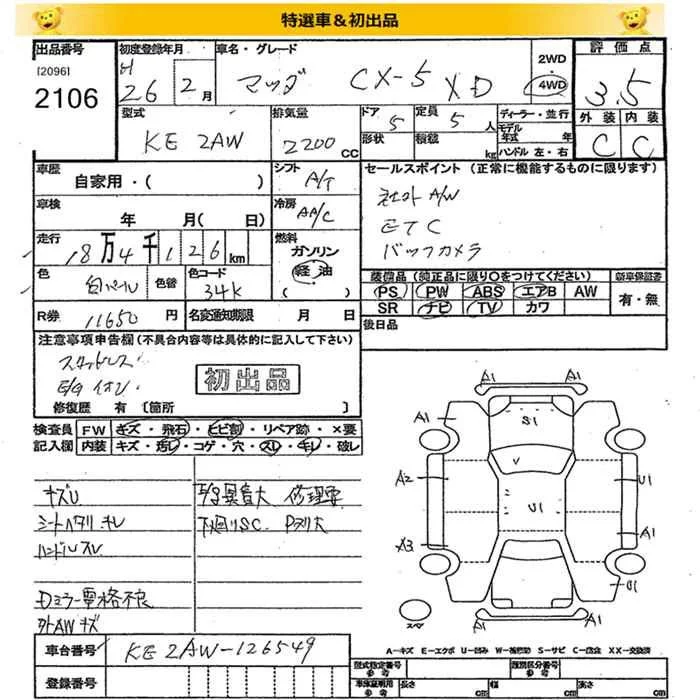 特選車＆初出品
出品番号
[2096]
2106
初度登録年月
H
26年 2月
車名・グレード
マツダ CX-5 XD
2WD
・
4WD
評価点
3.5
外装 内装
C C
型式
KE2AW
排気量
2200 CC
ドア 5
形状
定員 5 人
積載 kg
ディーラー・並行
モデル年式 年
ハンドル 左・右
車歴
自家用・( )
シフト
A/T
セールスポイント (正常に機能するものに限ります)
社外 A/W
ETC
バックカメラ
車検
年 月( 日)
冷房
AA/C
走行
18万4千126km
燃料
ガソリン
・
軽油
( )
色
白パール
色替
色コード
34K
装備品 (純正品に限り○をつけてください)
PS PW ABS エアB AW
SR ナビ TV カワ
新車保証書
有・無
R券 11650円
名変通知期限 月 日
後日品
注意事項申告欄 (不具合内容等は具体的に記入して下さい)
スタッドレス
E/G イオン
初出品
修復歴 有 [箇所 ]
検査員記入欄
FW キズ・飛石・ヒビ割・リペア跡・×要
内装 キズ・汚レ・コゲ・穴・スレ・キレ・破レ
キズU
シートヘタリ キレ
ハンドルスレ
Dミラー電格不良
外AWキズ
E/G異音大 修理要
下回りSC.
A1 A1
A1 S1 A1
A2 V U1
U1
A3 A1
U1
A1 A1
スペア
A－キズ E－エクボ U－凹み W－補修跡 S－サビ C－腐食 XX－交換済
車台番号 KE2AW-126549
登録番号
型式指定番号 参考
類別区分番号 参考
車庫証明用 参考
長さ cm
幅 cm
高さ cm